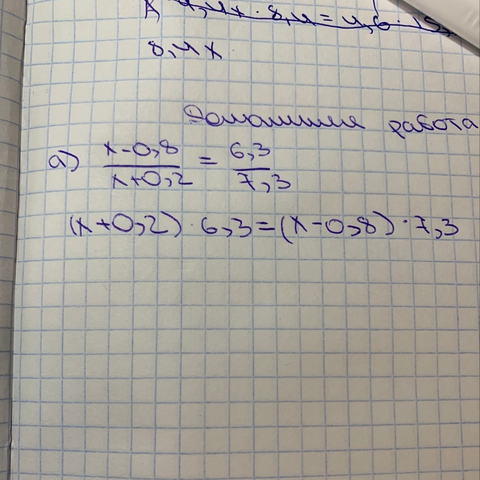 8,4x
Домашняя работа
а) x-0,8 / x+0,2 = 6,3 / 7,3
(x+0,2) · 6,3 = (x-0,8) · 7,3